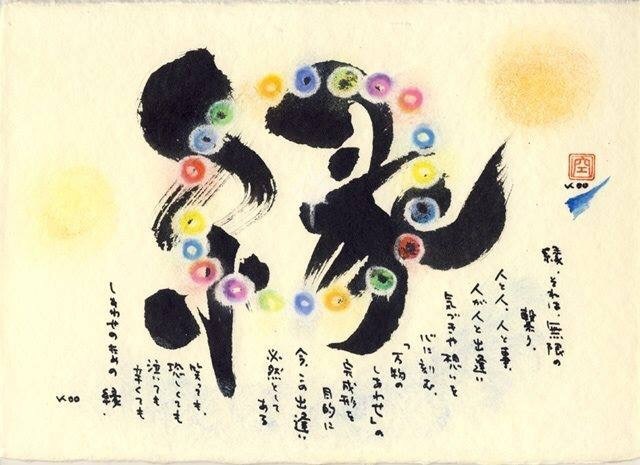 縁
空
koo
縁、それは、無限の
繋り
人と人、人と事
人が人と出逢い
気づきや想いを
心に刻む。
「万物の
しあわせ」の
完成形を
目的に
今、この出逢い
必然として
ある
笑っても、
泣いても
しあわせのための縁。
koo